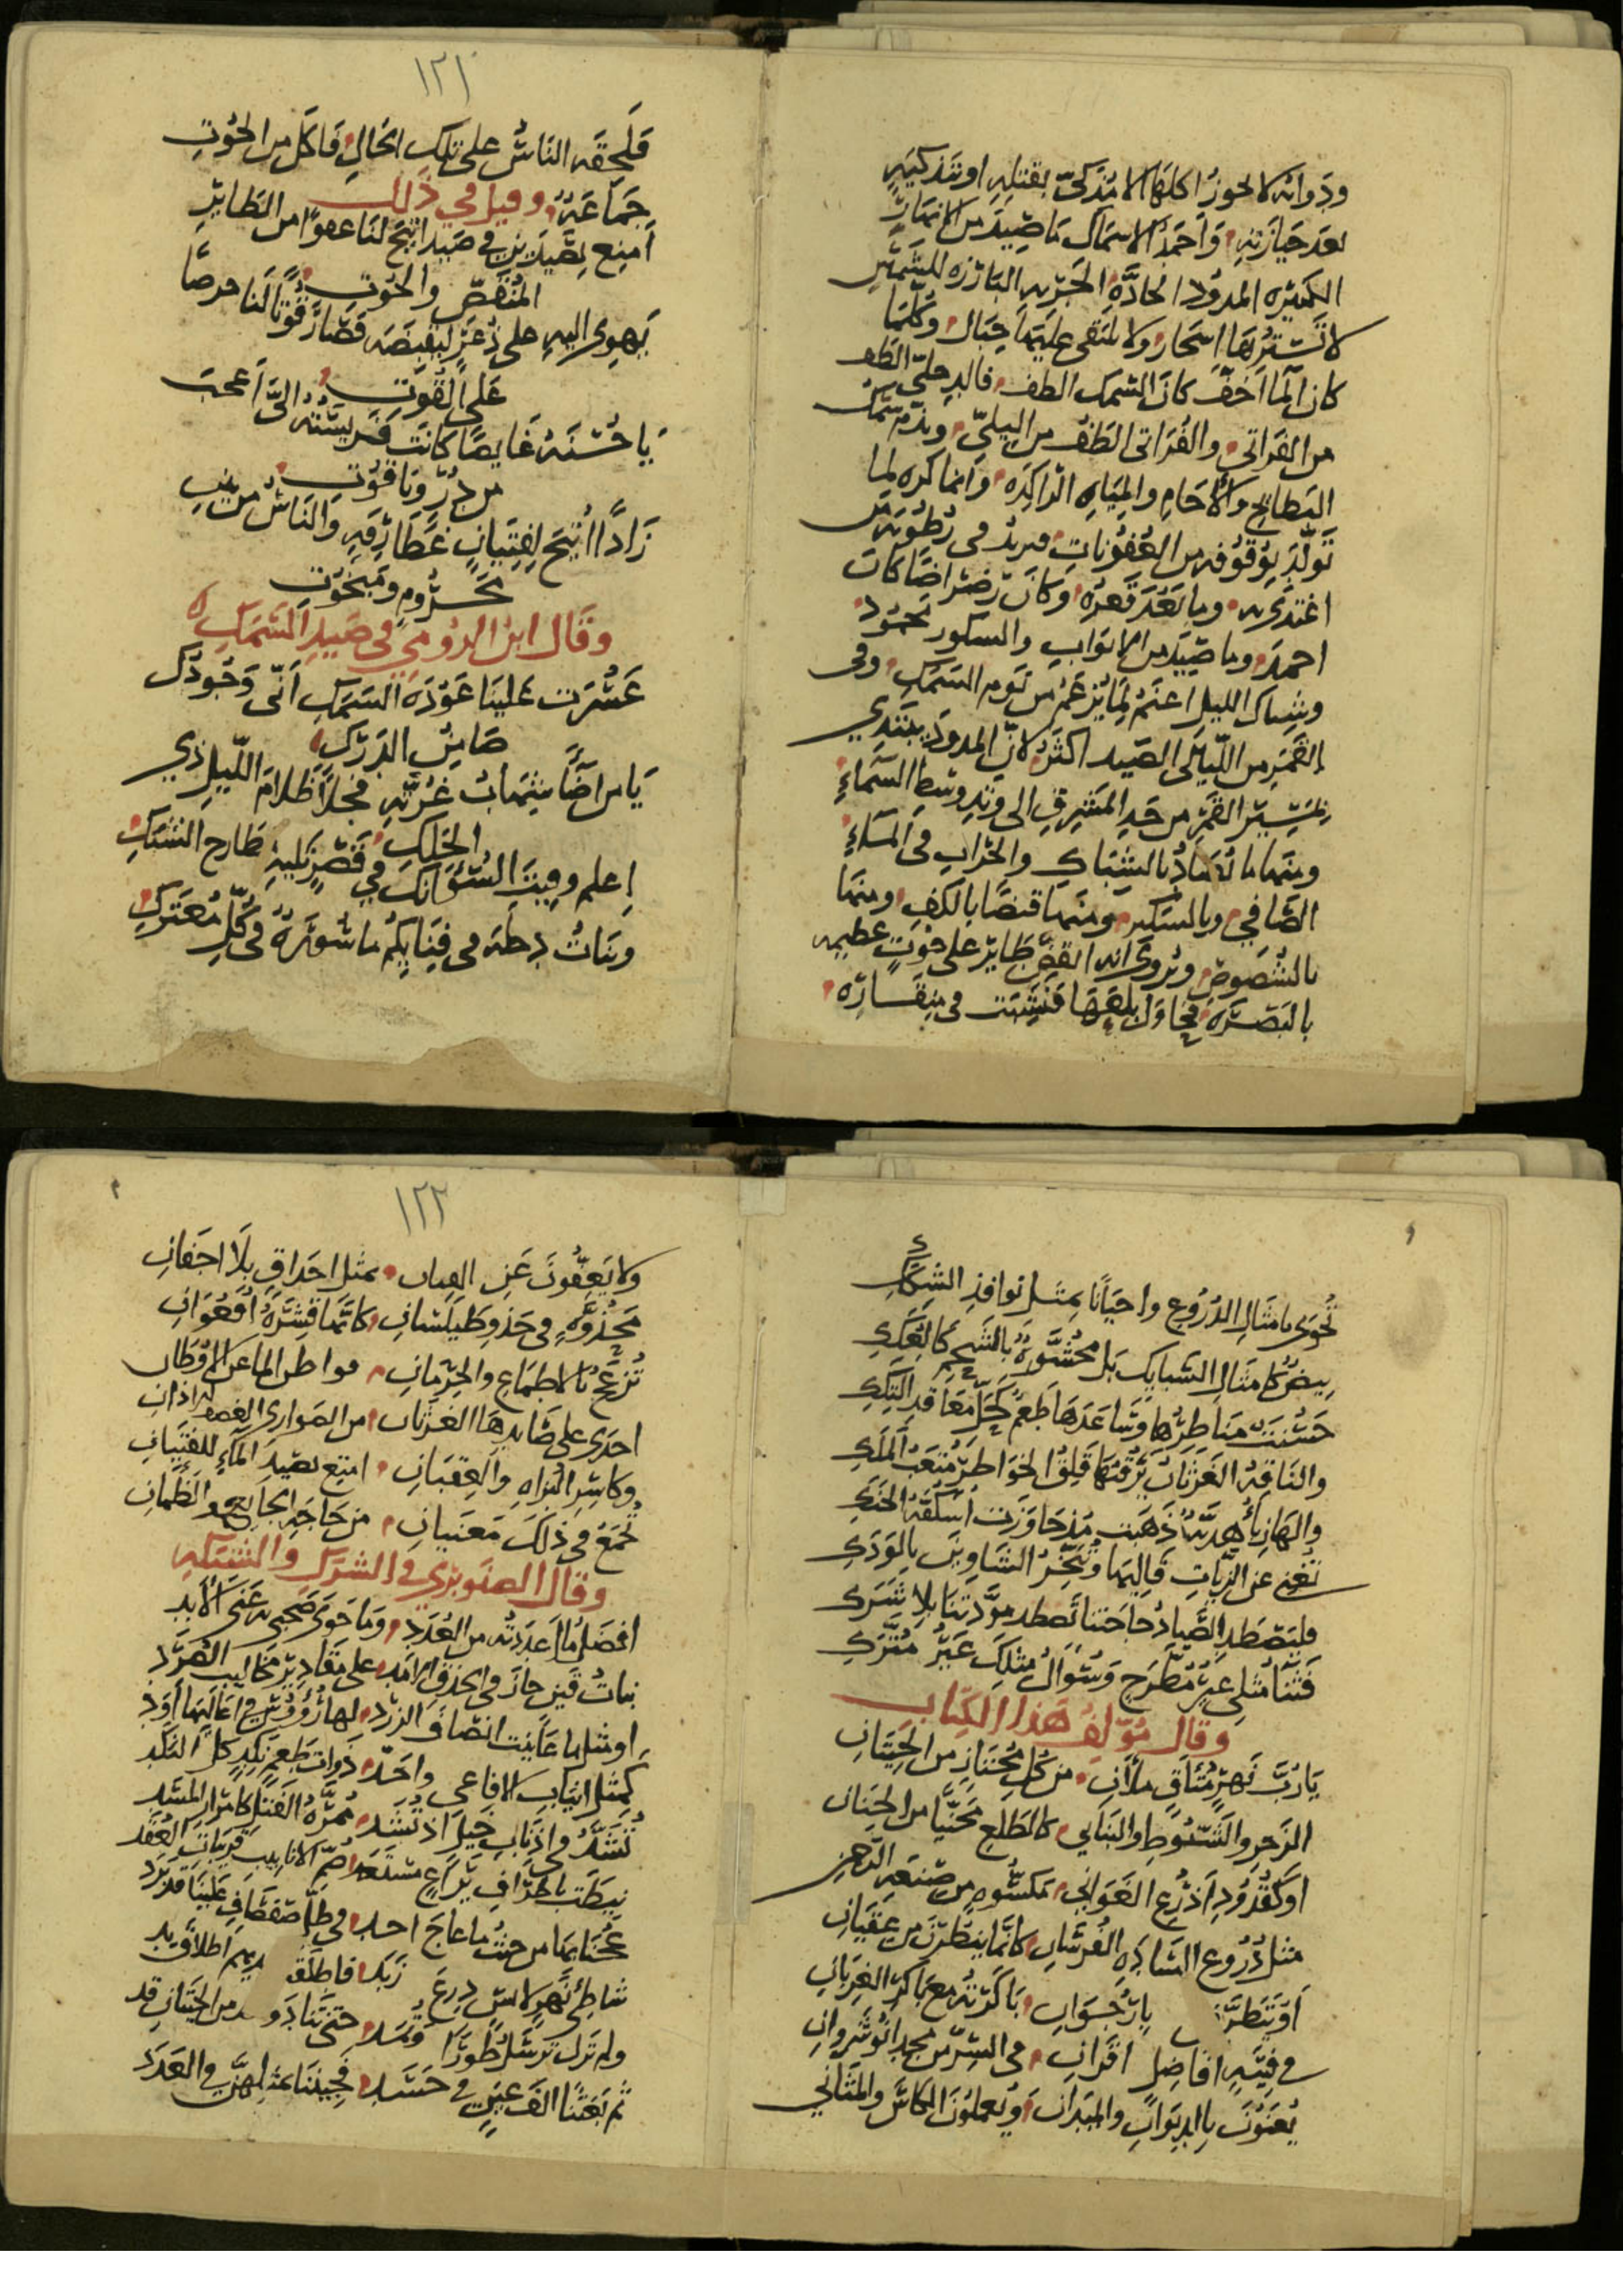 ودوابه لا يجوز اكلها الا مذكّى بقتله او تذكيته
بعد حيازته واحمد الاسماك ما صيد من الانهار
الكثيرة المدود الحادّة الجرية البارزة للشمس
لا تسترها اشجار ولا تلتقي عليها جبال وكلما
كان الما اخف كان السمك الطف فالدجلي الطف
من الفراتي والفراتي الطف من النيلي ويذم سمك
البطائح والاجام والمياه الراكدة وانما كره لما
تولد بوقوفه من العفونات فيزيد في رطوبة من
اغتذى به وما بَعُدَ قعره وكان رضراضا كان
احمد وما صيد من الابواب والسكور محمود
وشباك الليل اغنم لما يزعم من نوم السمك وفي
القمر من الليالي الصيد اكثر لان المدود يبتدي
بسير القمر من حد المشرق الى وتد وسط السماء
ومنها ما يصاد بالشباك والحراب في الماء
الصافي وبالسكر ومنها قنصا بالكف ومنها
بالشصوص ويروى انه انقض طاير على حوت عظيمه
بالبصرة فحاول بلعها فنشبت في منقاره
١٢١
فلحقه الناس على تلك الحال فاكل من الحوت
جماعة وقيل في ذلك
امتع بصيدين في صيد اتيح لنا عفوا من الطاير
المنقض والحوت
يهوي اليه على ذعر ليقبضه فصار قوتا لنا حرصا
على القوت
يا حسنه غايصا كانت فريسته اليّ اعجب
من در وياقوت
زادا اتيح لفتيان غطارفة والناس من بين
محروم ومبخوت
وقال ابن الرومي في صيد السمك
عسرت علينا عودة السمك انى وجودك
ضامن الدرك
يا من اضا شهاب غرته فجلا ظلام الليل ذي
الحلك
اعلم وقيت السو انك في قصر تليه طارح الشبك
وبنات دجلة في فنايكم ماسورة في كل معترك
تحوى بامثال الدروع واحيانا بمثل نوافذ الشكك
بيض كامثال السبايك بل محشوة بالشحم كالعكك
حسنت مناظرها وساعدها طعم كحل معاقد التكك
والناقه الغرثان يرقبها قلق الخواطر متعب الملك
والهازبا هدية ذهبت مذ جاوزت اسكفة الحنك
تغني عن الزيات قاليها وتبخر الشاوين بالودك
فليصطد الصياد حاجتنا تصطد مودتنا بلا شرك
فثنا مثلي غير مطرح وسوال مثلك غير مترك
وقال مولف هذا الكتاب
يا رب نهر متاق ملآن من كل مجتناز من الحيتان
الزجر والشبوط والبناني كالطلع مجنيا من الجنان
او كقدود اذرع الغواني مكسوة من صنعة الرحمن
مثل دروع السادة الفرسان كانما ينظرن من عقيان
او تنظر بارجوان باكرته مع باكر الغربان
في فتية افاضل اقران في السر من مجد انوشروان
يعنون بالديوان والميدان ويعملون الكاس والمثاني
١٢٢
ولا يعفون عن القيان بمثل احداق بلا اجفان
مجذوة في حذو طيلسان كانما قشرة افعوان
تزعج بالاطماع والحرمان مواطن الما عن الاوطان
اجدى على صايدها الغرثان من الصواري الغضف الاذان
وكاسر البزاه والعقبان امتع بصيد الماء للفتيان
تجمع في ذلك معنيان من حاجة الجايع والظمان
وقال الصنوبري في الشرك والشبكه
افضل ما اعددته من العدد وما حوى صحبي به غنى الابد
بنات قين حاز في الحذق الامد على مقادير مخاليب الصرد
او مثل ما عاينت انصاف الزرد لها رؤوس في اعاليها اود
كمثل انياب الافاعي واحد ذوات طعم نكد كل النكد
تشد في اذناب خيل اذ تشد ممرة الفتل كامرار المسد
نيطت باطراف يراع مستعد اصم الانابيب قريبات العقد
عجنا بها من حيث ما عاج احد في ظل صفصاف علينا قد برد
شاطئ نهر لابس درع زبد فاطلقت ايديهم اطلاق يد
ولم تزل ترسل طورا وتمد حتى تنادوا من الحيتان قد
ثم بعثنا الف عين في حسد فجيننا بمثلهن في العدد